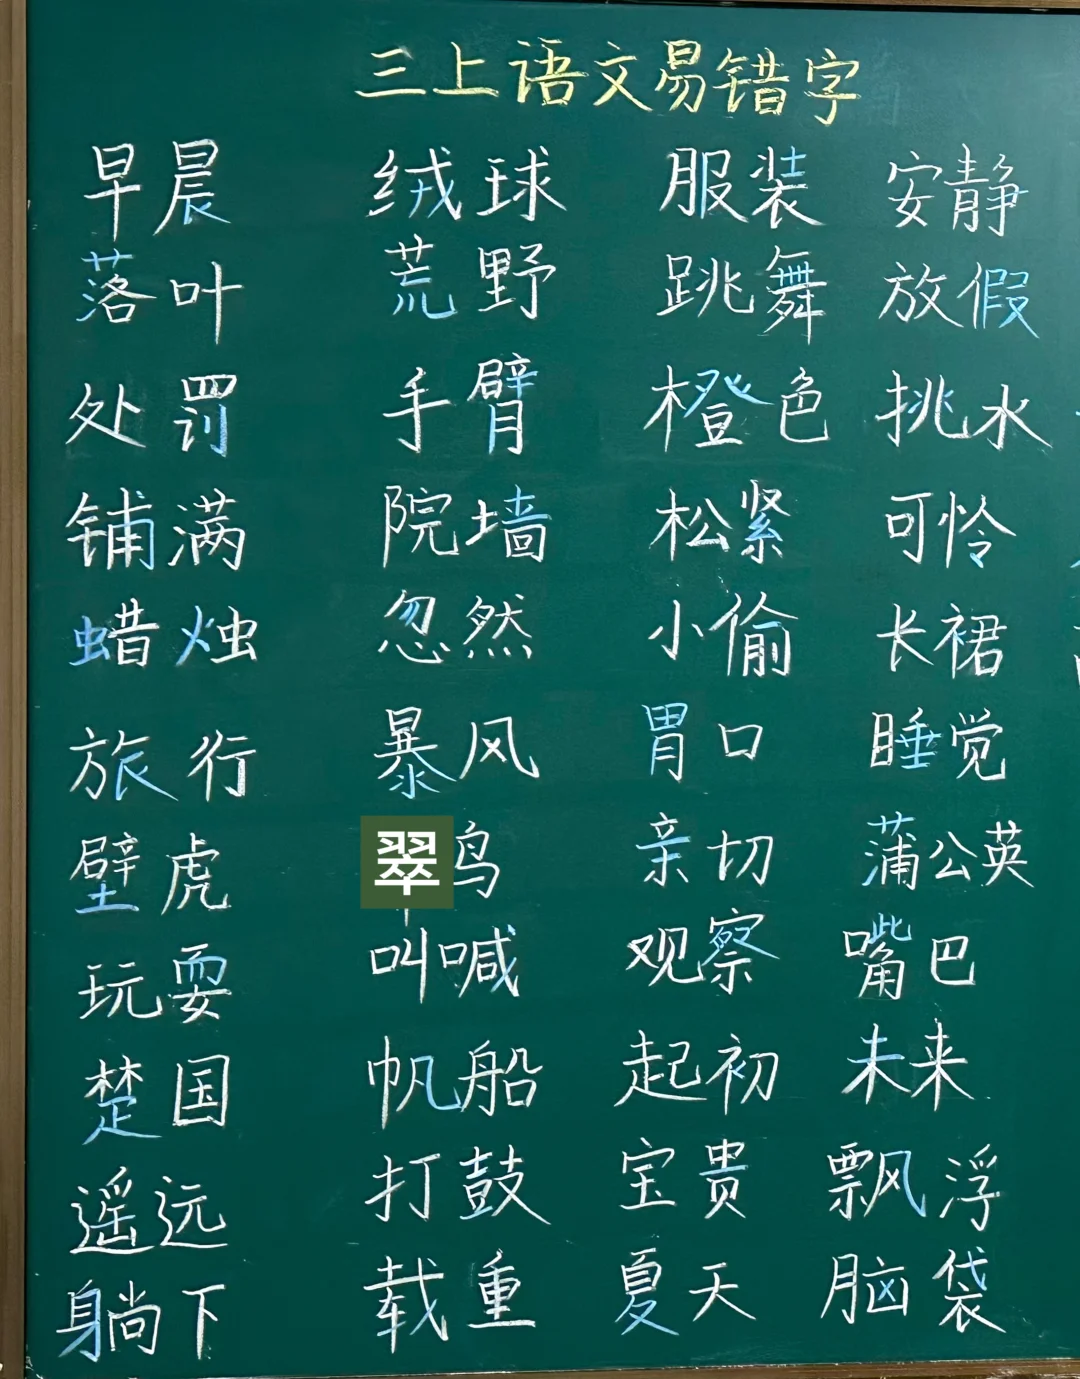 三上语文易错字
早晨 绒球 服装 安静
落叶 荒野 跳舞 放假
处罚 手臂 橙色 挑水
铺满 院墙 松紧 可怜
蜡烛 忽然 小偷 长裙
旅行 暴风 胃口 睡觉
壁虎 翠鸟 亲切 蒲公英
玩耍 叫喊 观察 嘴巴
楚国 帆船 起初 未来
遥远 打鼓 宝贵 飘浮
躺下 载重 夏天 脑袋